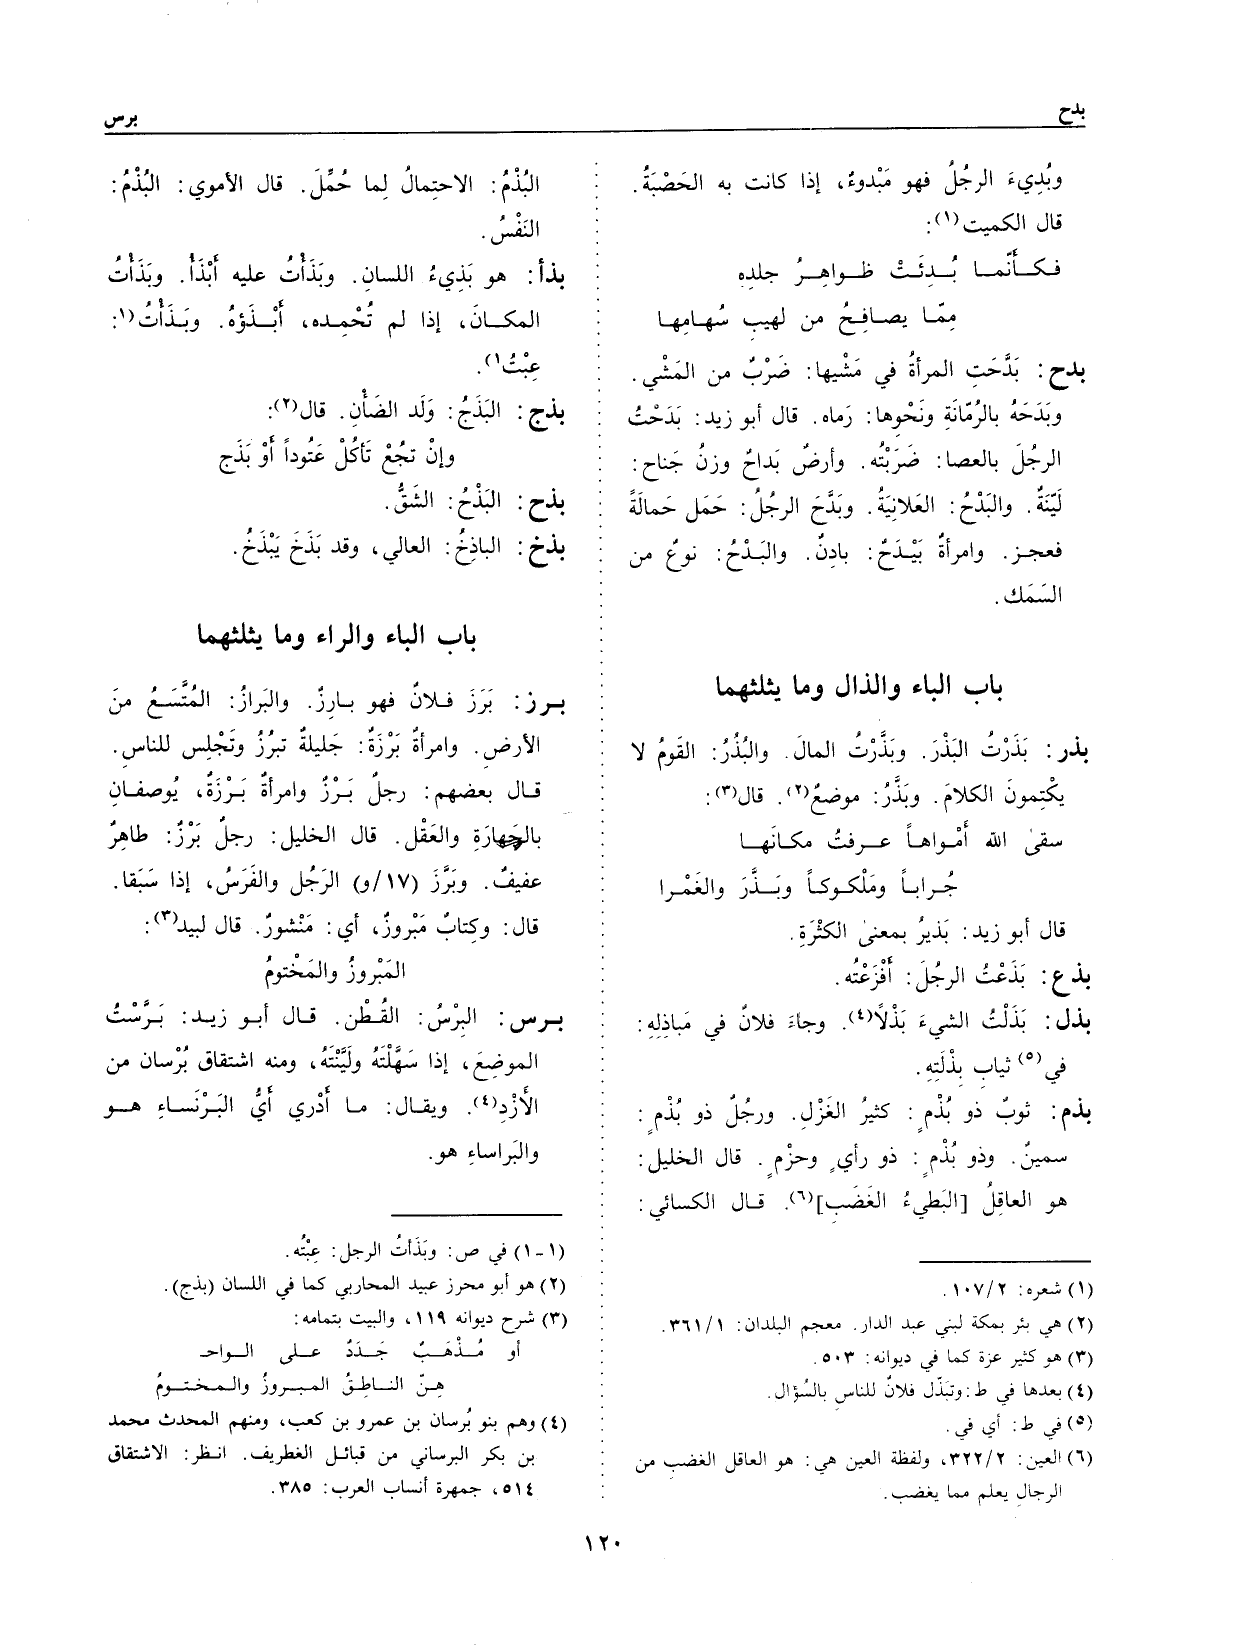 بدح
برس
وبُدِيءَ الرجُلُ فهو مَبْدوءٌ، إذا كانت به الحَصْبَةُ.
قال الكميت(١):
فكأنّما بُدِئَتْ ظواهِرُ جلدِه
مِمّا يصافِحُ من لهيبِ سُهامِها
بدح: بَدَّحَتِ المرأةُ في مَشْيِها: ضَرْبٌ من المَشْي.
وبَدَحَهُ بالرُمّانَةِ ونَحْوها: رَماه. قال أبو زيد: بَدَحْتُ
الرجُلَ بالعصا: ضَرَبْتُه. وأرضٌ بَداحٌ وزنُ جَناح:
لَيّنَةٌ. والبَدْحُ: العَلانِيَةُ. وبَدَّحَ الرجُلُ: حَمَل حَمالَةً
فعجز. وامرأةٌ بَيْدَحٌ: بادِنٌ. والبَدْحُ: نوعٌ من
السَمَك.
باب الباء والذال وما يثلثهما
بذر: بَذَرْتُ البَذْرَ. وبَذَّرْتُ المالَ. والبُذُرُ: القَومُ لا
يكْتِمونَ الكلامَ. وبَذَّرُ: موضعٌ(٢). قال(٣):
سقىٰ الله أمْواهاً عرفتُ مكانَها
جُراباً ومَلْكوكاً وبَذَّرَ والغَمْرا
قال أبو زيد: بَذيرٌ بمعنىٰ الكثْرَةِ.
بذع: بَذَعْتُ الرجُلَ: أفْزَعْتُه.
بذل: بَذَلْتُ الشيءَ بَذْلاً(٤). وجاءَ فلانٌ في مَباذِلِه:
في(٥) ثيابِ بِذْلَتِهِ.
بذم: ثوبٌ ذو بُذْمٍ: كثيرُ الغَزْلِ. ورجُلٌ ذو بُذْمٍ:
سمينٌ. وذو بُذْمٍ: ذو رأيٍ وحزْمٍ. قال الخليل:
هو العاقِلُ [البَطيءُ الغَضَبِ](٦). قال الكسائي:
(١) شعره: ١٠٧/٢.
(٢) هي بئر بمكة لبني عبد الدار. معجم البلدان: ٣٦١/١.
(٣) هو كثير عزة كما في ديوانه: ٥٠٣.
(٤) بعدها في ط: وتَبَذّل فلانٌ للناسِ بالسُؤال.
(٥) في ط: أي في.
(٦) العين: ٣٢٢/٢، ولفظة العين هي: هو العاقل الغضب من
الرجال يعلم مما يغضب.
البُذْمُ: الاحتِمالُ لِما حُمِّلَ. قال الأموي: البُذْمُ:
النَفْسُ.
بذأ: هو بَذِيءُ اللسانِ. وبَذَأْتُ عليه أبْذَأُ. وبَذَأْتُ
المكانَ، إذا لم تُحْمِده، أبْذَؤهُ. وبَذَأْتُ(١:
عِبْتُ١).
بذج: البَذَجُ: وَلَد الضَأنِ. قال(٢):
وإنْ تجُعْ تَأكُلْ عَتُوداً أوْ بَذَج
بذح: البَذْحُ: الشَقُّ.
بذخ: الباذِخُ: العالي، وقد بَذَخَ يَبْذَخُ.
باب الباء والراء وما يثلثهما
برز: بَرَزَ فلانٌ فهو بارِزٌ. والبَرازُ: المُتَّسَعُ من
الأرض. وامرأةٌ بَرْزَةٌ: جَليلةٌ تبرُزُ وتَجْلِس للناسِ.
قال بعضهم: رجلٌ بَرْزٌ وامرأةٌ بَرْزَةٌ، يُوصفانِ
بالجَهارَةِ والعَقْل. قال الخليل: رجلٌ بَرْزٌ: طاهِرٌ
عفيفٌ. وبَرَّزَ (١٧/و) الرَجُل والفَرَسُ، إذا سَبَقا.
قال: وكِتابٌ مَبْروزٌ، أي: مَنْشورٌ. قال لبيد(٣):
المَبْروزُ والمَخْتومُ
برس: البِرْسُ: القُطْن. قال أبو زيد: بَرَّسْتُ
الموضِعَ، إذا سَهَّلْتَهُ ولَيَّنْتَهُ، ومنه اشتقاق بُرْسان من
الأزْدِ(٤). ويقال: ما أدْري أيُّ البَرْنَساءِ هو
والبَراساءِ هو.
(١-١) في ص: وبَذَأتُ الرجل: عِبْتُه.
(٢) هو أبو محرز عبيد المحاربي كما في اللسان (بذج).
(٣) شرح ديوانه ١١٩، والبيت بتمامه:
أو مُذْهَبٌ جَدَدٌ على الواحه
هِنّ الناطِقُ المبروزُ والمختومُ
(٤) وهم بنو بُرسان بن عمرو بن كعب، ومنهم المحدث محمد
بن بكر البرساني من قبائل الغطريف. انظر: الاشتقاق
٥١٤، جمهرة أنساب العرب: ٣٨٥.
١٢٠